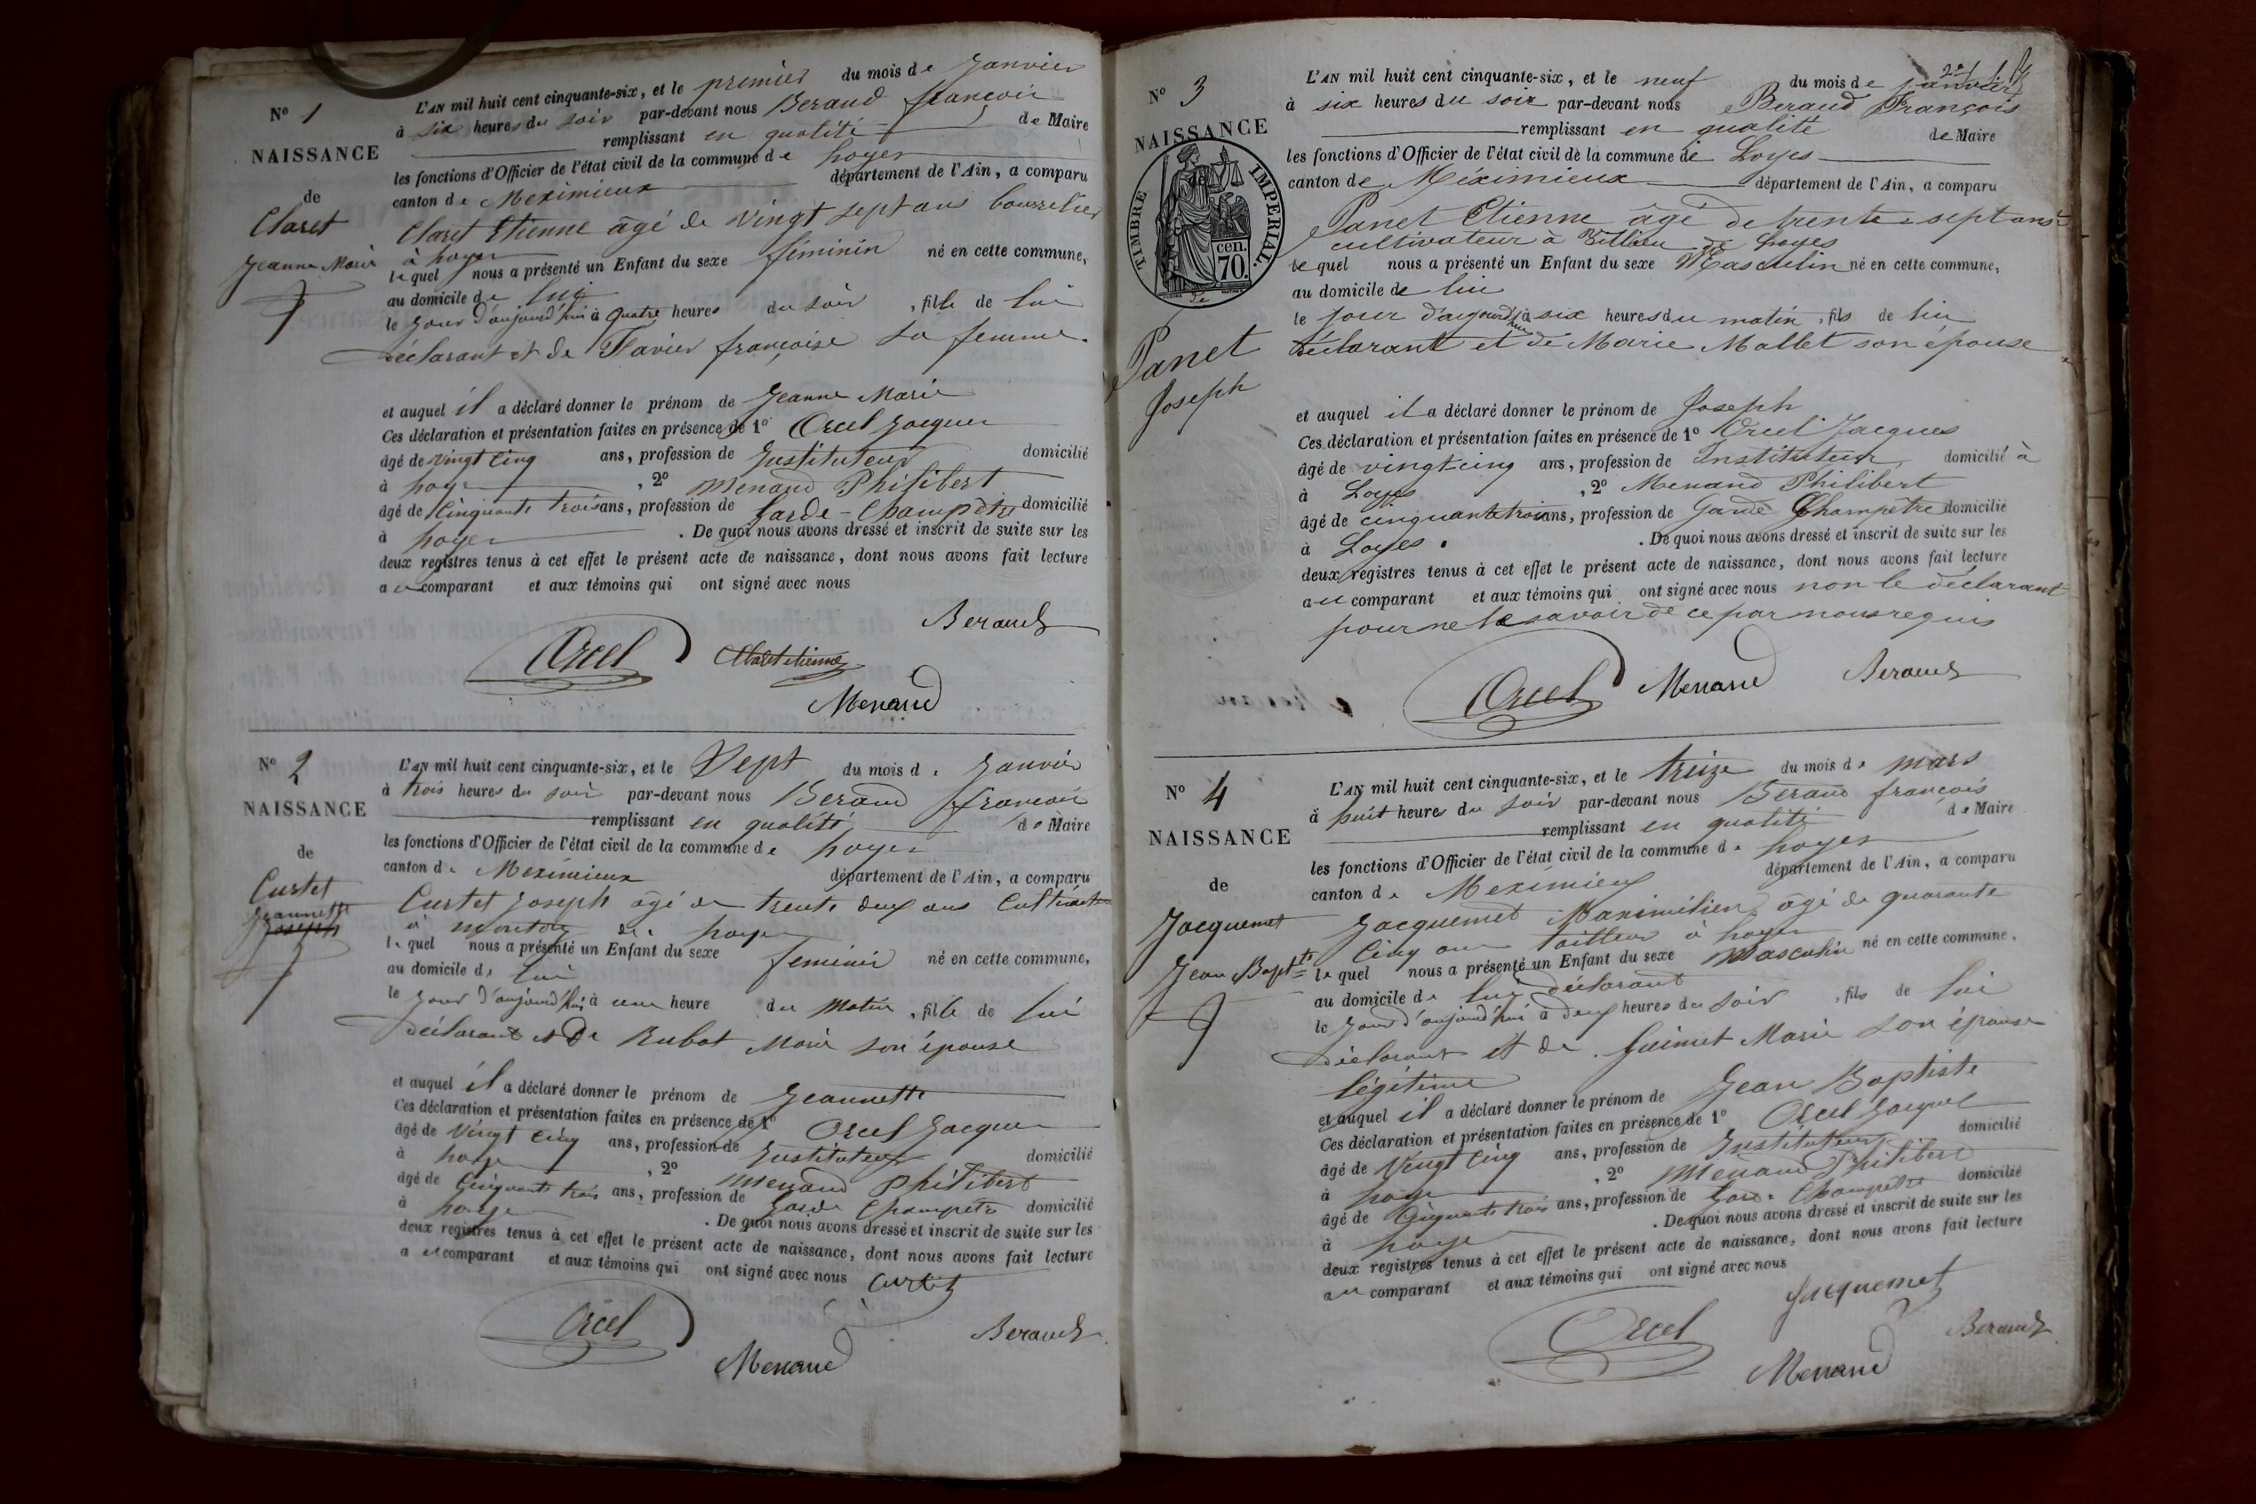 N° 1
NAISSANCE
de
Claret
Jeanne Marie
L'AN mil huit cent cinquante-six, et le premier du mois de Janvier
à six heures du soir par-devant nous Beraud françois
remplissant en qualité de Maire
les fonctions d'Officier de l'état civil de la commune de Loyes
canton de Meximieux département de l'Ain, a comparu
Claret Etienne âgé de vingt sept ans bourrelier
à Loyes
lequel nous a présenté un Enfant du sexe féminin né en cette commune,
au domicile de lui
le jour d'aujourd'hui à quatre heures du soir, fille de lui
déclarant et de Favier françoise sa femme.
et auquel il a déclaré donner le prénom de Jeanne Marie
Ces déclaration et présentation faites en présence de 1° Orcel Jacques
âgé de vingt cinq ans, profession de Instituteur domicilié
à Loyes, 2° Menand Philibert
âgé de Cinquante trois ans, profession de Garde-Champêtre domicilié
à Loyes. De quoi nous avons dressé et inscrit de suite sur les
deux registres tenus à cet effet le présent acte de naissance, dont nous avons fait lecture
au comparant et aux témoins qui ont signé avec nous
Beraud
Orcel Claret etienne
Menand
N° 2
NAISSANCE
de
Curtet
Jeannette
Joseph
L'AN mil huit cent cinquante-six, et le Sept du mois de Janvier
à trois heures du soir par-devant nous Beraud françois
remplissant en qualité de Maire
les fonctions d'Officier de l'état civil de la commune de Loyes
canton de Meximieux département de l'Ain, a comparu
Curtet Joseph âgé de trente deux ans Cultivateur
à de Loyes
lequel nous a présenté un Enfant du sexe feminin né en cette commune,
au domicile de lui
le jour d'aujourd'hui à une heure du matin, fille de lui
déclarant et de Rubat Marie son épouse
et auquel il a déclaré donner le prénom de Jeannette
Ces déclaration et présentation faites en présence de 1° Orcel Jacques
âgé de vingt cinq ans, profession de Instituteur domicilié
à Loyes, 2° Menand Philibert
âgé de Cinquante trois ans, profession de Garde Champetre domicilié
à Loyes. De quoi nous avons dressé et inscrit de suite sur les
deux registres tenus à cet effet le présent acte de naissance, dont nous avons fait lecture
au comparant et aux témoins qui ont signé avec nous Curtet
Orcel Beraud
Menand
N° 3
NAISSANCE
TIMBRE IMPÉRIAL.
cen.
70.
de
Panet
Joseph
L'AN mil huit cent cinquante-six, et le neuf du mois de janvier
à six heures du soir par-devant nous Beraud François
remplissant en qualité de Maire
les fonctions d'Officier de l'état civil de la commune de Loyes
canton de Méximieux département de l'Ain, a comparu
Panet Etienne âgé de trente-sept ans
cultivateur à Villieu de Loyes
lequel nous a présenté un Enfant du sexe Masculin né en cette commune,
au domicile de lui
le jour d'aujourd'hui à six heures du matin, fils de lui
déclarant et de Marie Mallet son épouse
et auquel il a déclaré donner le prénom de Joseph
Ces déclaration et présentation faites en présence de 1° Orcel Jacques
âgé de vingt cinq ans, profession de Instituteur domicilié à
à Loyes, 2° Menand Philibert
âgé de cinquante trois ans, profession de Garde Champêtre domicilié
à Loyes. De quoi nous avons dressé et inscrit de suite sur les
deux registres tenus à cet effet le présent acte de naissance, dont nous avons fait lecture
au comparant et aux témoins qui ont signé avec nous non le déclarant
pour ne le savoir de ce par nous requis
Orcel Menand Beraud
N° 4
NAISSANCE
de
Jacquemet
Jean Baptte
L'AN mil huit cent cinquante-six, et le treize du mois de mars
à huit heures du soir par-devant nous Beraud françois
remplissant en qualité de Maire
les fonctions d'Officier de l'état civil de la commune de Loyes
canton de Meximieux département de l'Ain, a comparu
Jacquemet Maximilien âgé de quarante
Cinq ans tailleur à Loyes
lequel nous a présenté un Enfant du sexe Masculin né en cette commune,
au domicile de lui déclarant
le jour d'aujourd'hui à deux heures du soir, fils de lui
déclarant et de Guimet Marie son épouse
légitime
et auquel il a déclaré donner le prénom de Jean Baptiste
Ces déclaration et présentation faites en présence de 1° Orcel Jacques
âgé de Vingt Cinq ans, profession de Instituteur domicilié
à Loyes, 2° Menand Philibert
âgé de Cinquante trois ans, profession de Garde Champêtre domicilié
à Loyes. De quoi nous avons dressé et inscrit de suite sur les
deux registres tenus à cet effet le présent acte de naissance, dont nous avons fait lecture
au comparant et aux témoins qui ont signé avec nous
Jacquemet
Orcel Beraud
Menand